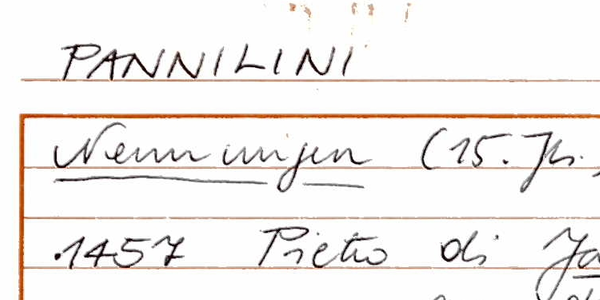 PANNILINI
Nennungen (15. Jh.,
.1457 Pietro di Ja